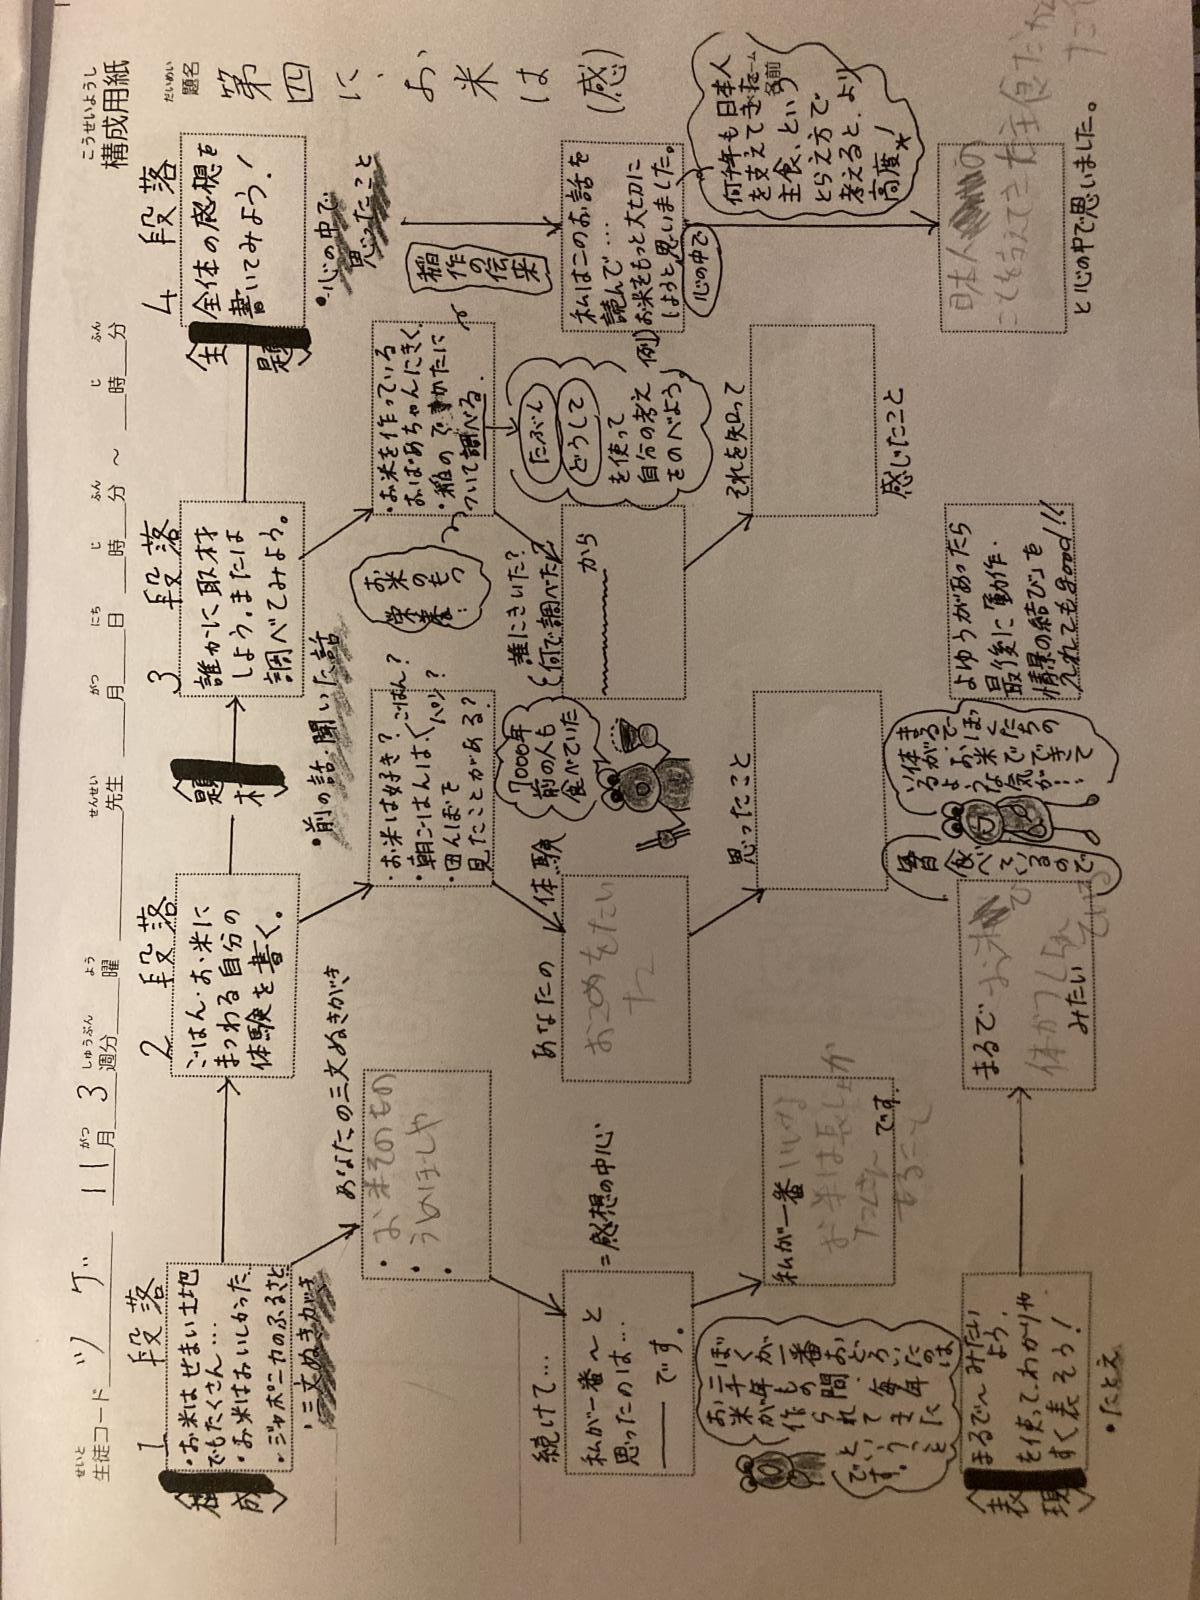 こうせいようし
構成用紙
せいと
生徒コード ツゲ 11 がつ 月 3 しゅうぶん 週分 よう 曜 せんせい 先生 がつ 月 にち 日 じ 時 ふん 分 ～ じ 時 ふん 分
だいめい
題名
第四に、お米は (感)
1段落
・お米はせまい土地
でもたくさん…
・お米はおいしかった
・ジャポニカのふるさと
・三文ぬきがき
あなたの三文ぬきがき
・お米そのもの
・
・
続けて…
私が一番～と
思ったのは…
――です。
=感想の中心
私が一番
お米は長
です。
ぼくが一番おどろいたのは
お米が
三千年もの間、毎年
作られてきた
ということ
です。
〈表現〉
まるで～みたい
よう、
を使って、わかりや
すく表そう！
・たとえ
2段落
ごはん・お米に
まつわる自分の
体験を書く。
・前の話・聞いた話
・お米は好き？
・朝ごはんは
ごはん？
パン？
・田んぼを
見たことがある？
7000年
前の人も
食べていた
あなたの体験
おこめをたい
た
思ったこと
まるで
お米
体
みたい
毎日食べているので
まるで、ぼくたちの
体が、お米でできて
いるような気が…
〈題材〉
3段落
誰かに取材
しよう。または
調べてみよう。
・お米を作っている
おばあちゃんにきく
・稲ので きかたに
ついて調べる。
お米のもつ
栄養…
たぶん
どうして
を使って
自分の考え
をのべよう。
誰にきいた？
何で調べた？
から
それを知って
感じたこと
よゆうがあったら
最後に「動作・
情景の結び」を
入れてもgood!!!
〈主題〉
4段落
全体の感想を
書いてみよう！
・心の中で
思ったこと
稲作の伝来
例)
私はこのお話を
読んで…
お米をもっと大切に
しようと思いました。
心の中で
何千年も日本人
を支えてきた
主食、という
とらえ方で
考えると、より
高度！
チーム
名前
日本人
こともを支えてきた主食だ
と心の中で思いました。